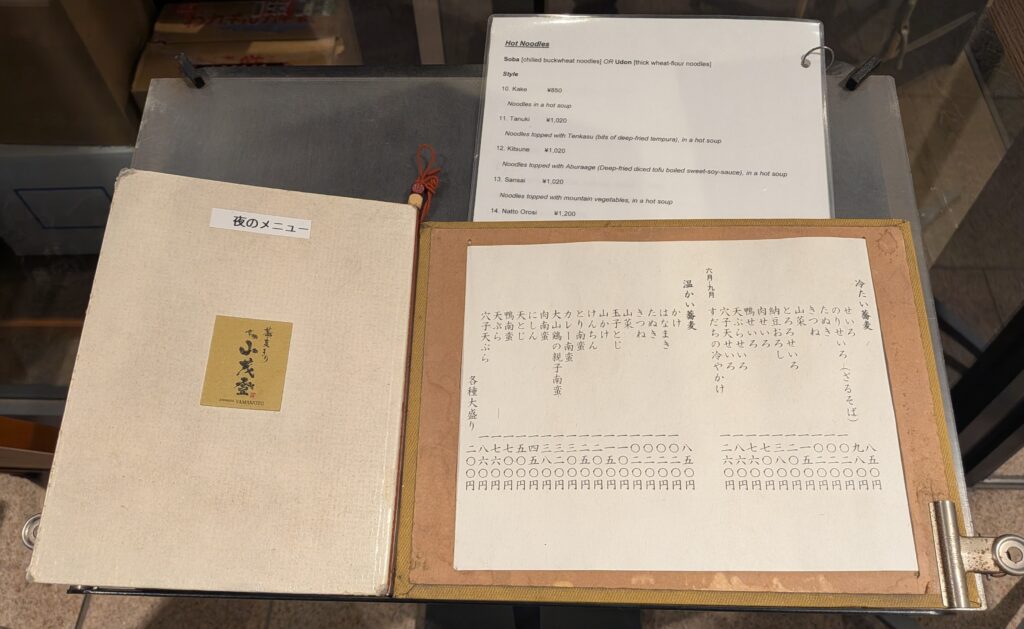 Hot Noodles
Soba [chilled buckwheat noodles] OR Udon [thick wheat-flour noodles]
Style
10. Kake ¥850
Noodles in a hot soup
11. Tanuki ¥1,020
Noodles topped with Tenkasu (bits of deep-fried tempura), in a hot soup
12. Kitsune ¥1,020
Noodles topped with Aburaage (Deep-fried diced tofu boiled sweet-soy-sauce), in a hot soup
13. Sansai ¥1,020
Noodles topped with mountain vegetables, in a hot soup
14. Natto Orosi ¥1,200
夜のメニュー
蕎麦きり
小茂登
YAMAMOTO
冷たい蕎麦
せいろ 八五〇円
のりせいろ(ざるそば) 九八〇円
たぬき 一〇二〇円
きつね 一〇二〇円
山菜 一〇二〇円
とろろせいろ 一一五〇円
納豆おろし 一二〇〇円
肉せいろ 一三八〇円
鴨せいろ 一七〇〇円
天ぷらせいろ 一七六〇円
穴子天せいろ 一八六〇円
六月〜九月
すだちの冷やかけ 一二六〇円
温かい蕎麦
かけ 八五〇円
はなまき 一〇二〇円
たぬき 一〇二〇円
きつね 一〇二〇円
山菜 一〇二〇円
玉子とじ 一一〇〇円
山かけ 一一五〇円
けんちん 一二〇〇円
とり南蛮 一二五〇円
カレー南蛮 一三〇〇円
大山鶏の親子南蛮 一三二〇円
肉南蛮 一三八〇円
にしん 一四五〇円
天とじ 一五〇〇円
鴨南蛮 一七〇〇円
天ぷら 一七六〇円
穴子天ぷら 一八六〇円
各種大盛り 二〇〇円